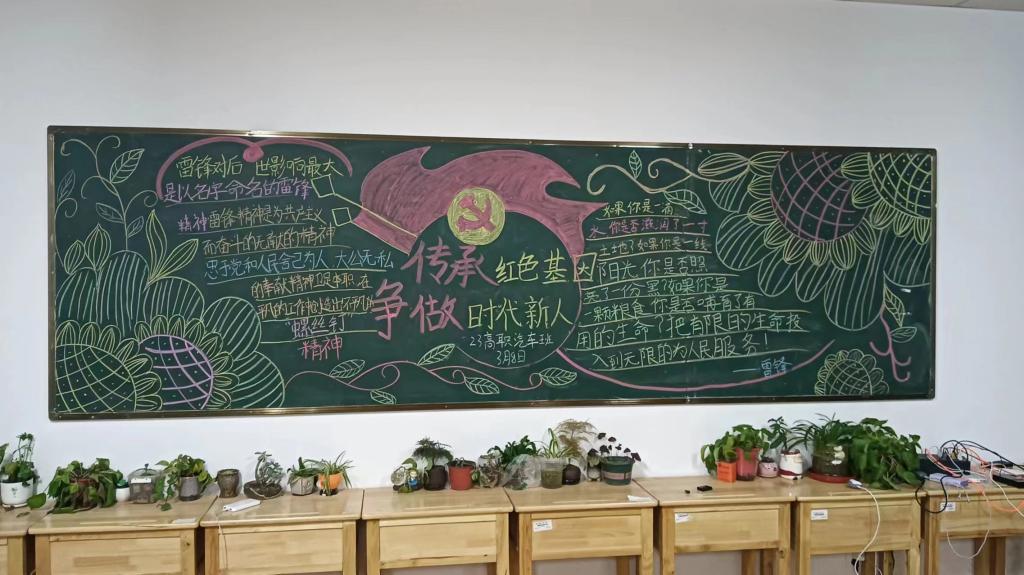 雷锋对后世影响最大
是以名字命名的雷锋
精神雷锋精神是为共产主义
而奋斗的无敌的精神
忠于党和人民舍己为人 大公无私
的奉献精神立足本职、在
平凡的工作中创造出不平凡的
"螺丝钉"
精神
传承红色基因
争做时代新人
23高职汽车班
3月8日
如果你是一滴
水,你是否滋润了一寸
土地?如果你是一线
阳光,你是否照
亮了一分黑暗?如果你是
一颗粮食,你是否哺育了有
用的生命?把有限的生命投
入到无限的为人民服务!
——雷锋